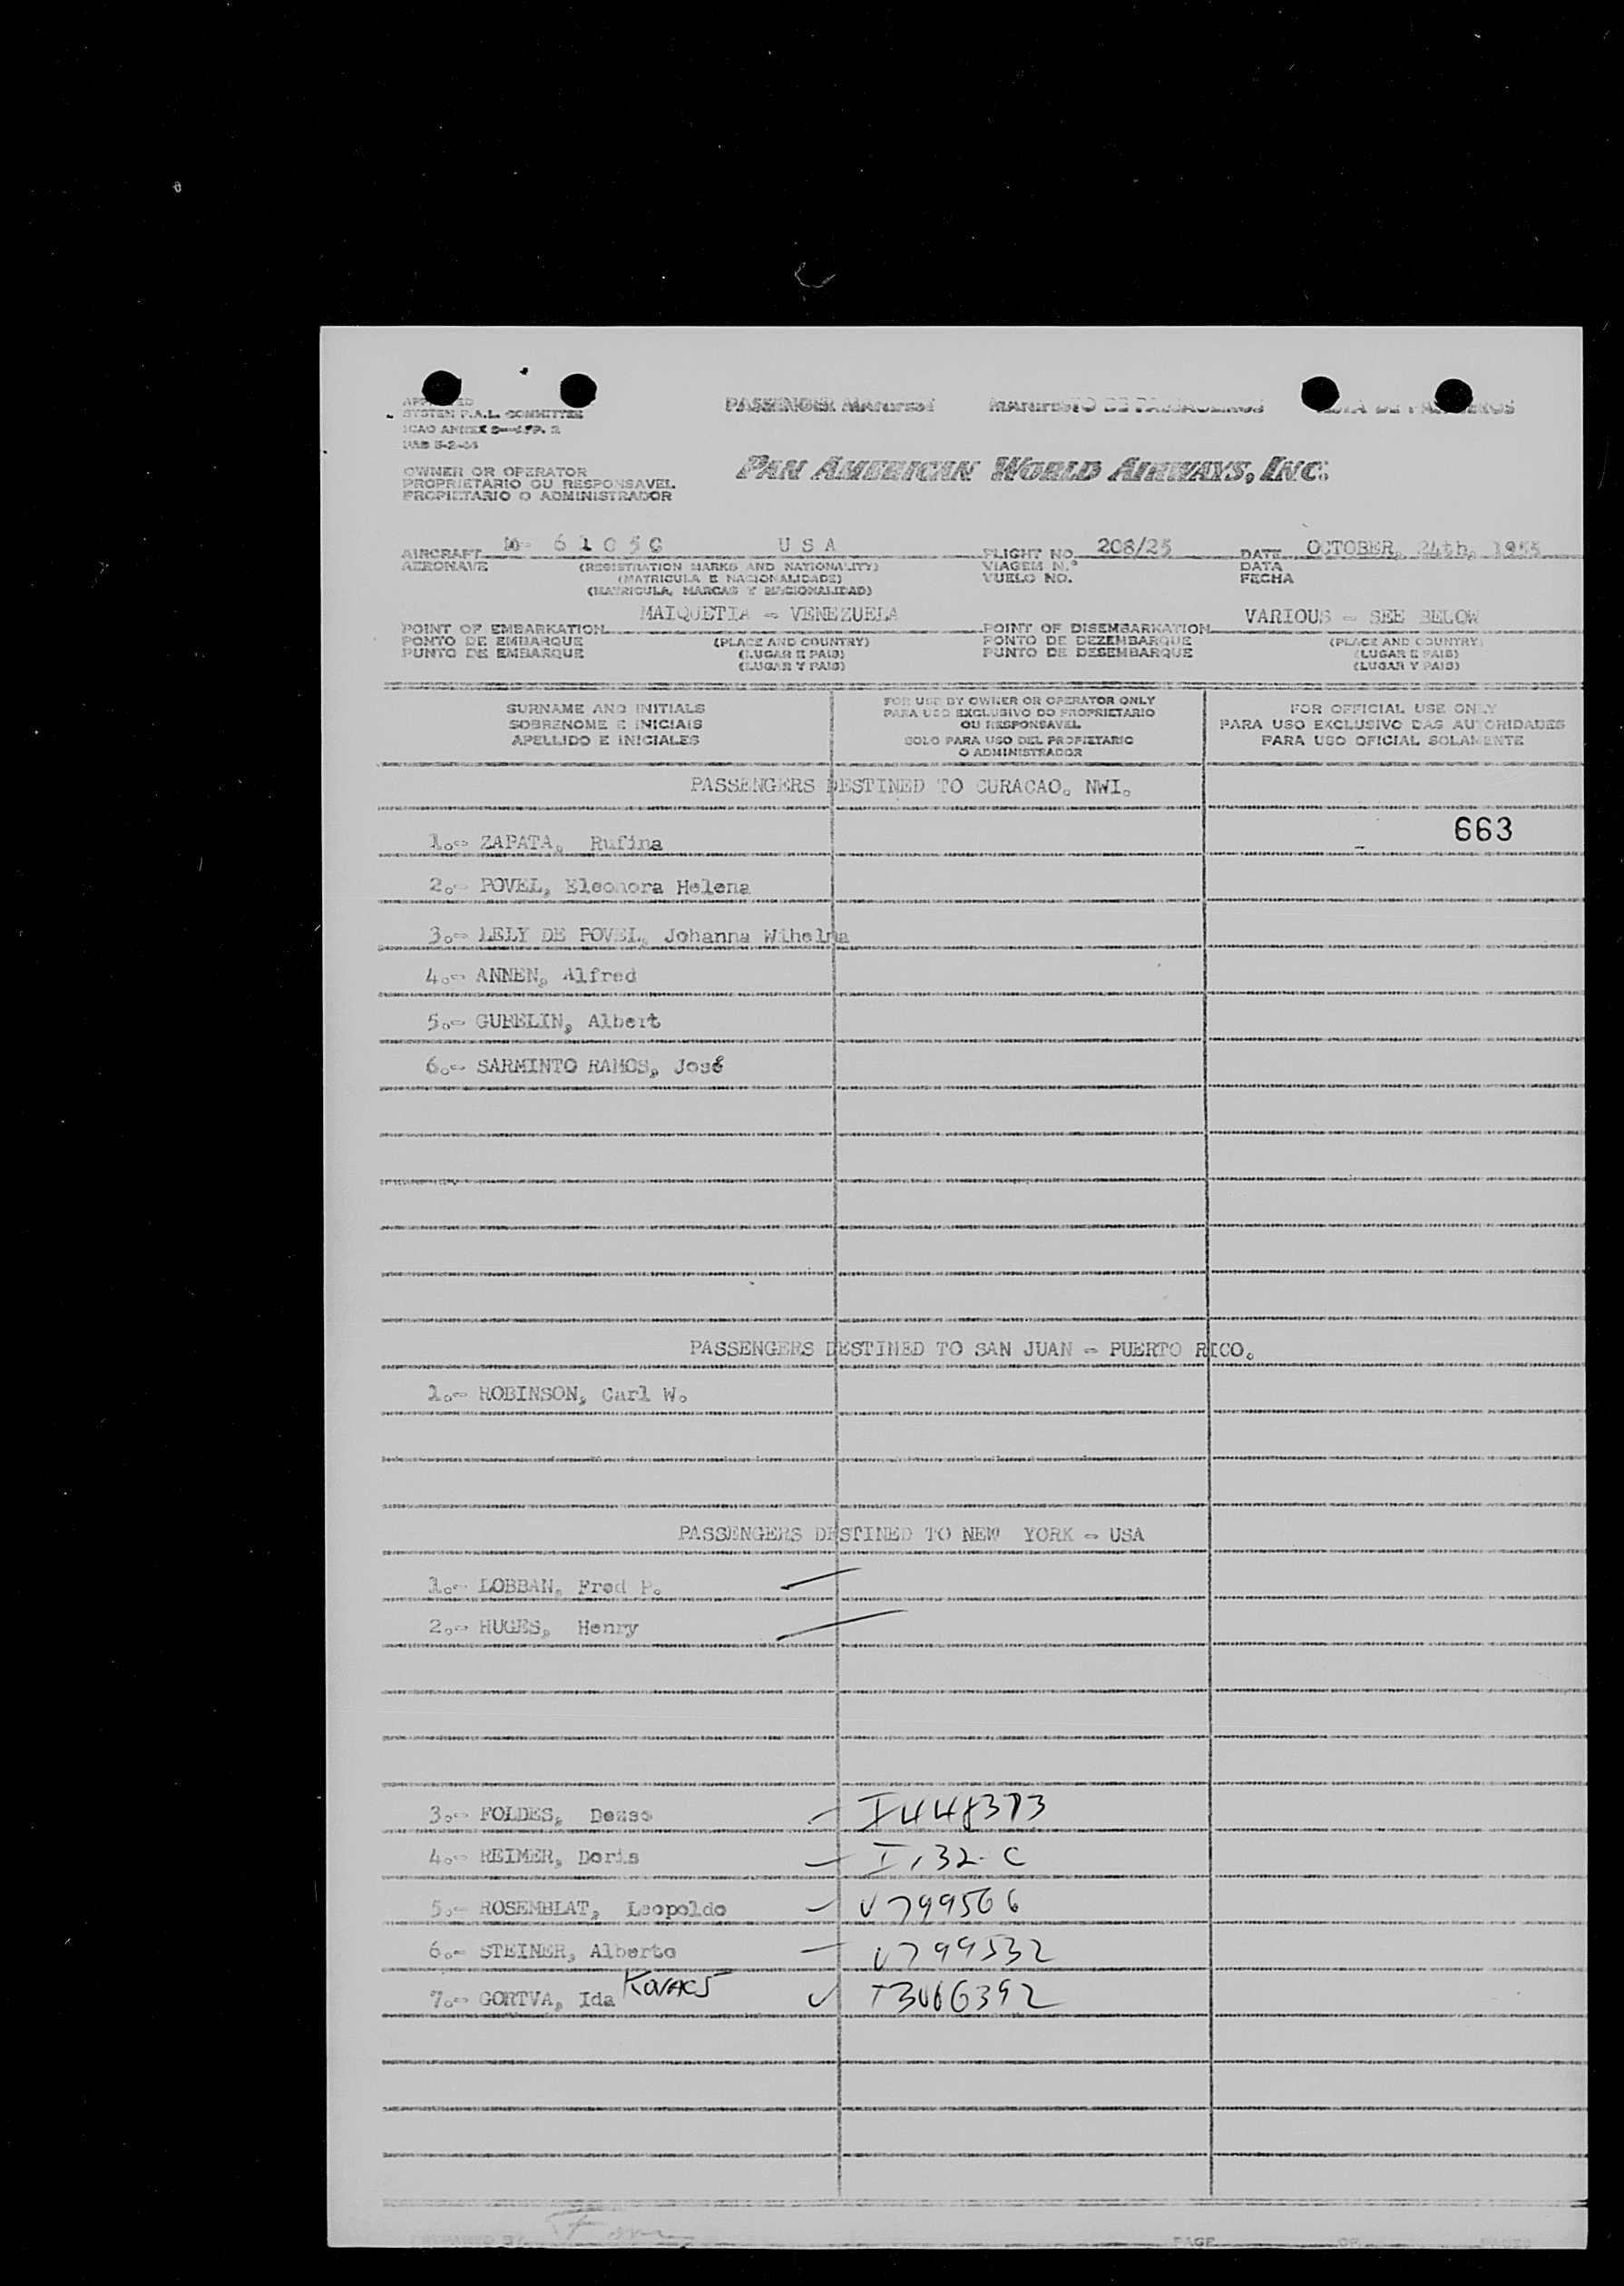 PASSENGER MANIFEST MANIFESTO DE PASSAGEIROS LISTA DE PASAJEROS
SYSTEM F.A.L. COMMITTEE
ICAO ANNEX 9
PAN AMERICAN WORLD AIRWAYS, INC.
OWNER OR OPERATOR
PROPRIETARIO OU RESPONSAVEL
PROPIETARIO O ADMINISTRADOR
AIRCRAFT 6105C USA FLIGHT NO. 208/25 DATE OCTOBER, 24th, 1955
AERONAVE (REGISTRATION MARKS AND NATIONALITY) VIAGEM N.° DATA
(MATRICULA E NACIONALIDADE) VUELO NO. FECHA
(MATRICULA, MARCAS Y NACIONALIDAD)
POINT OF EMBARKATION MAIQUETIA - VENEZUELA POINT OF DISEMBARKATION VARIOUS - SEE BELOW
PONTO DE EMBARQUE (PLACE AND COUNTRY) PONTO DE DEZEMBARQUE (PLACE AND COUNTRY)
PUNTO DE EMBARQUE (LUGAR E PAIS) PUNTO DE DESEMBARQUE (LUGAR E PAIS)
(LUGAR Y PAIS) (LUGAR Y PAIS)
SURNAME AND INITIALS
SOBRENOME E INICIAIS
APELLIDO E INICIALES
FOR USE BY OWNER OR OPERATOR ONLY
PARA USO EXCLUSIVO DO PROPRIETARIO
OU RESPONSAVEL
SOLO PARA USO DEL PROPIETARIO
O ADMINISTRADOR
FOR OFFICIAL USE ONLY
PARA USO EXCLUSIVO DAS AUTORIDADES
PARA USO OFICIAL SOLAMENTE
PASSENGERS DESTINED TO CURACAO. NWI.
663
1.- ZAPATA, Rufina
2.- POVEL, Eleonora Helena
3.- LELY DE POVEL, Johanna Wihelma
4.- ANNEN, Alfred
5.- GUBELIN, Albert
6.- SARMINTO RAMOS, José
PASSENGERS DESTINED TO SAN JUAN - PUERTO RICO.
1.- ROBINSON, Carl W.
PASSENGERS DESTINED TO NEW YORK - USA
1.- LOBBAN, Fred P.
2.- HUGES, Henry
3.- FOLDES, Dezso I448373
4.- REIMER, Doris I 132-C
5.- ROSEMBLAT, Leopoldo V799506
6.- STEINER, Alberto V799532
7.- GORTVA, Ida Kovacs
PAGE OF